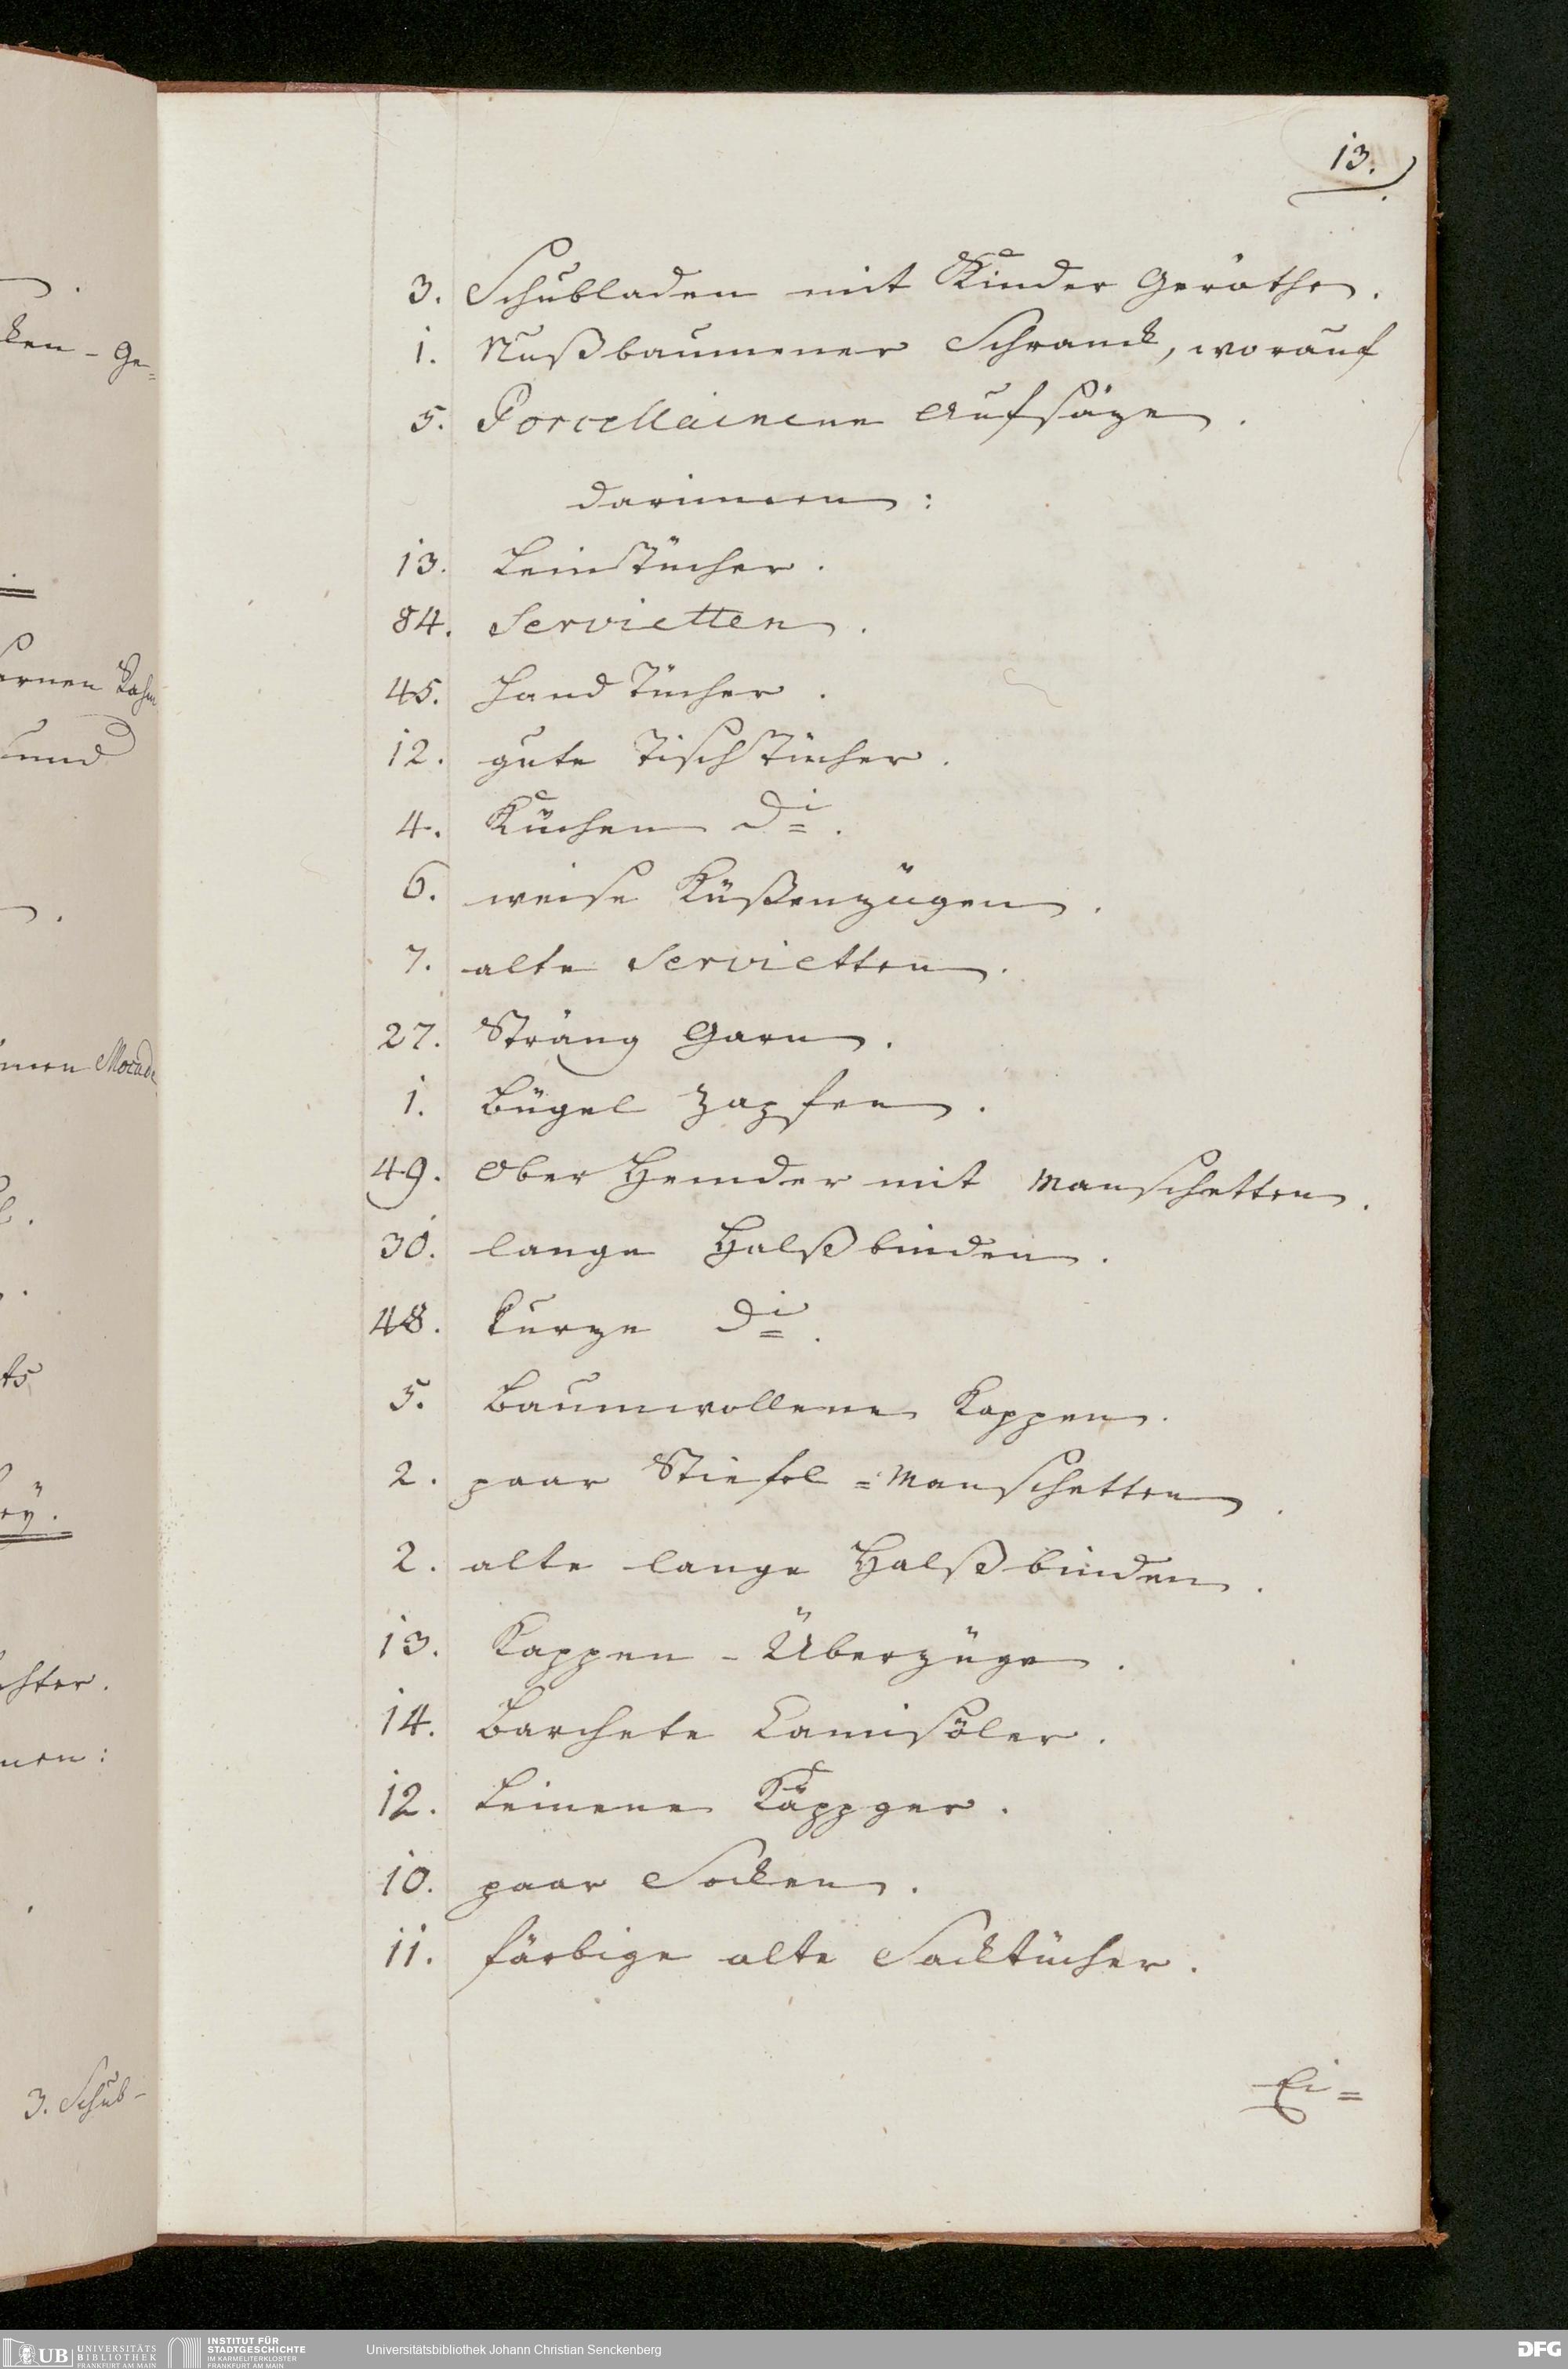 13.
3. Schubladen mit Kinder Geräthe.
1. Nußbaumener Schranck, worauf
5. Porcellainene Aufsäze.
darinnen:
13. Leinstücher.
84. Servietten.
45. Hand Tücher.
12. gute Tischtücher.
4. Küchen Di.
6. weise Küßenzügen.
7. alte Servietten.
27. Sträng Garn.
1. Bügel Zapfen.
49. Ober Hemder mit Manschetten.
30. lange Halßbinden.
48. kurze Di.
5. Baumwollene Kappen.
2. paar Stiefel=Manschetten.
2. alte lange Halßbinden.
13. Kappen-Überzüge.
14. Barchete Camisöler.
12. Leinene Käppger.
10. paar Socken.
11. färbige alte Sacktücher.
Ei=
ken-Ge=
3. Schub-
UB UNIVERSITÄTS BIBLIOTHEK FRANKFURT AM MAIN
INSTITUT FÜR STADTGESCHICHTE IM KARMELITERKLOSTER FRANKFURT AM MAIN
Universitätsbibliothek Johann Christian Senckenberg
DFG